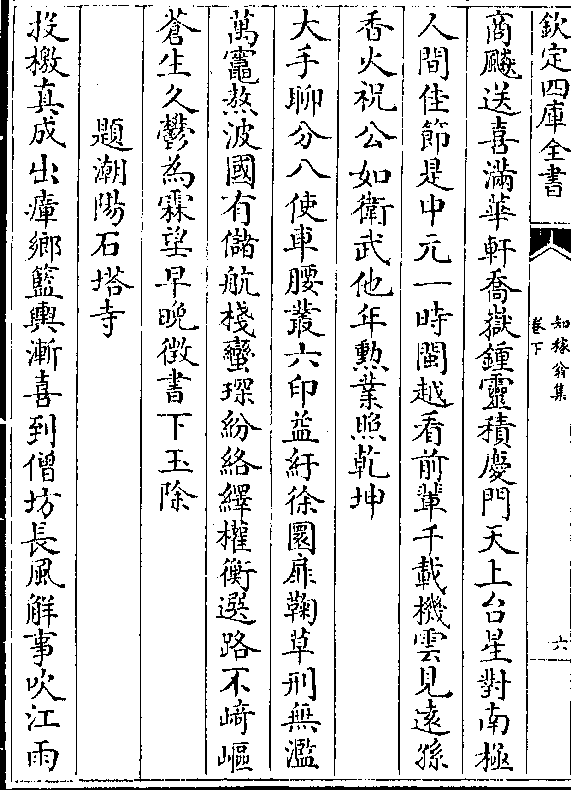 欽定四庫全書
知稼翁集
卷下
六
商飇送喜滿華軒喬嶽鍾靈積慶門天上台星對南極
人間佳節是中元一時閩越看前輩千載機雲見遠孫
香火祝公如衛武他年勲業照乾坤
大手聊分八使車腰叢六印益紆徐圜扉鞠草刑無濫
萬竈熬波國有儲航棧蠻琛紛絡繹權衡選路不﨑嶇
蒼生久鬱為霖望早晚徴書下玉除
題潮陽石塔寺
投檄真成出瘴鄉籃輿漸喜到僧坊長風解事吹江雨